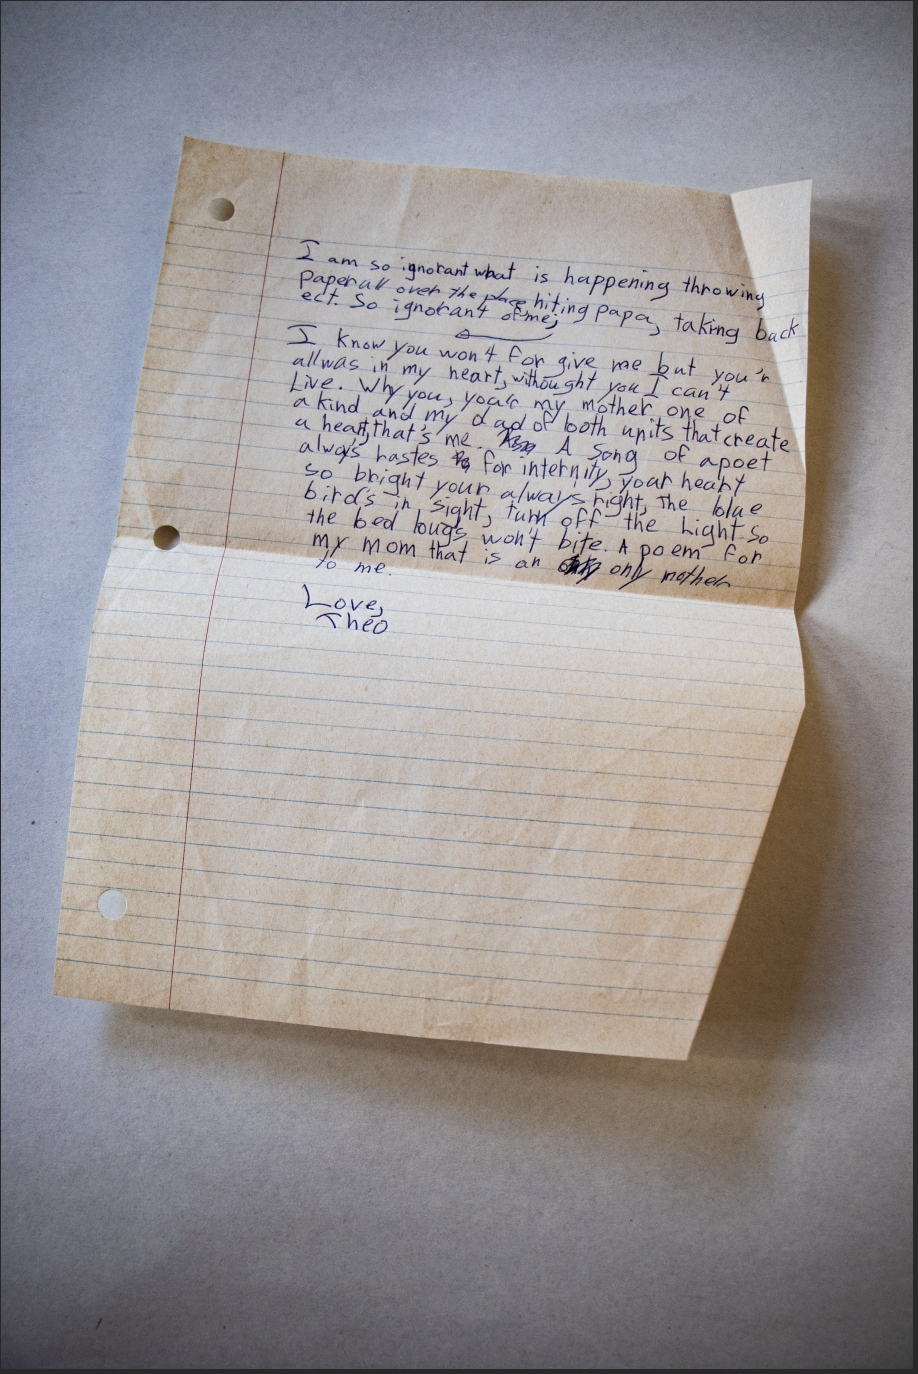 I am so ignorant what is happening throwing
paper all over the place, hiting papa, taking back
ect. So ignorant of me;
I know you won't for give me but you'r
allwas in my heart, withought you I can't
Live. Why you, you'r my mother one of
a kind and my dad of both units that create
a heart, that's me. A song of a poet
always hastes for internity, your heart
so bright your always right, The blue
bird's in sight, turn off the Light so
the bed bugs won't bite. A poem for
my mom that is an only mother
to me.
Love,
Theo